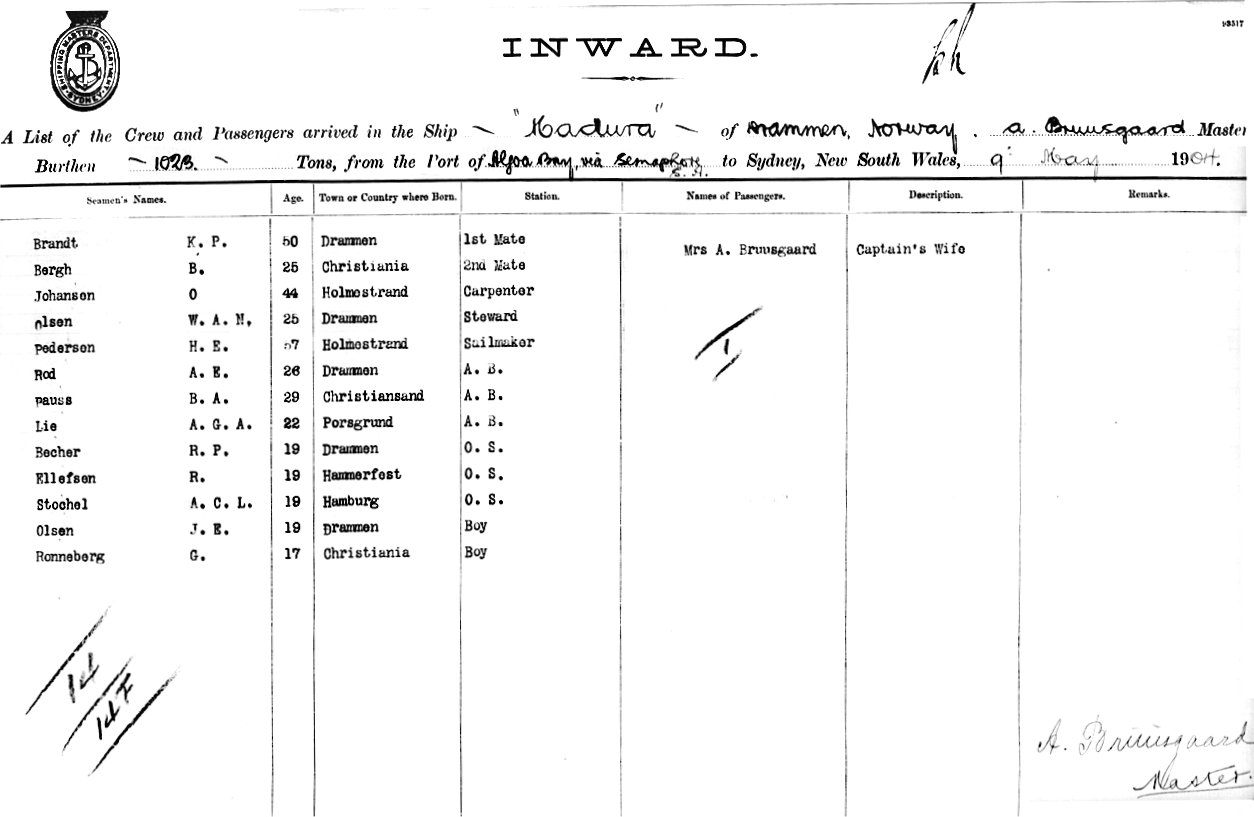 SHIPPING MASTERS DEPARTMENT SYDNEY
INWARD.
A List of the Crew and Passengers arrived in the Ship "Madura" of Drammen, Norway. A. Bruusgaard Master
Burthen 1023. Tons, from the Port of Algoa Bay, via Semaphore S.A. to Sydney, New South Wales, 9 May 1904.
Seamen's Names. Age. Town or Country where Born. Station. Names of Passengers. Description. Remarks.
Brandt K. P. 50 Drammen 1st Mate Mrs A. Bruusgaard Captain's Wife
Bergh B. 25 Christiania 2nd Mate
Johansen O 44 Holmestrand Carpenter
Olsen W. A. N. 25 Drammen Steward
Pedersen H. E. 57 Holmestrand Sailmaker
Rod A. E. 26 Drammen A. B.
Pauss B. A. 29 Christiansand A. B.
Lie A. G. A. 22 Porsgrund A. B.
Becher R. P. 19 Drammen O. S.
Ellefsen R. 19 Hammerfest O. S.
Stochel A. C. L. 19 Hamburg O. S.
Olsen J. E. 19 Drammen Boy
Ronneberg G. 17 Christiania Boy
1
14
14 F
A. Bruusgaard
Master.